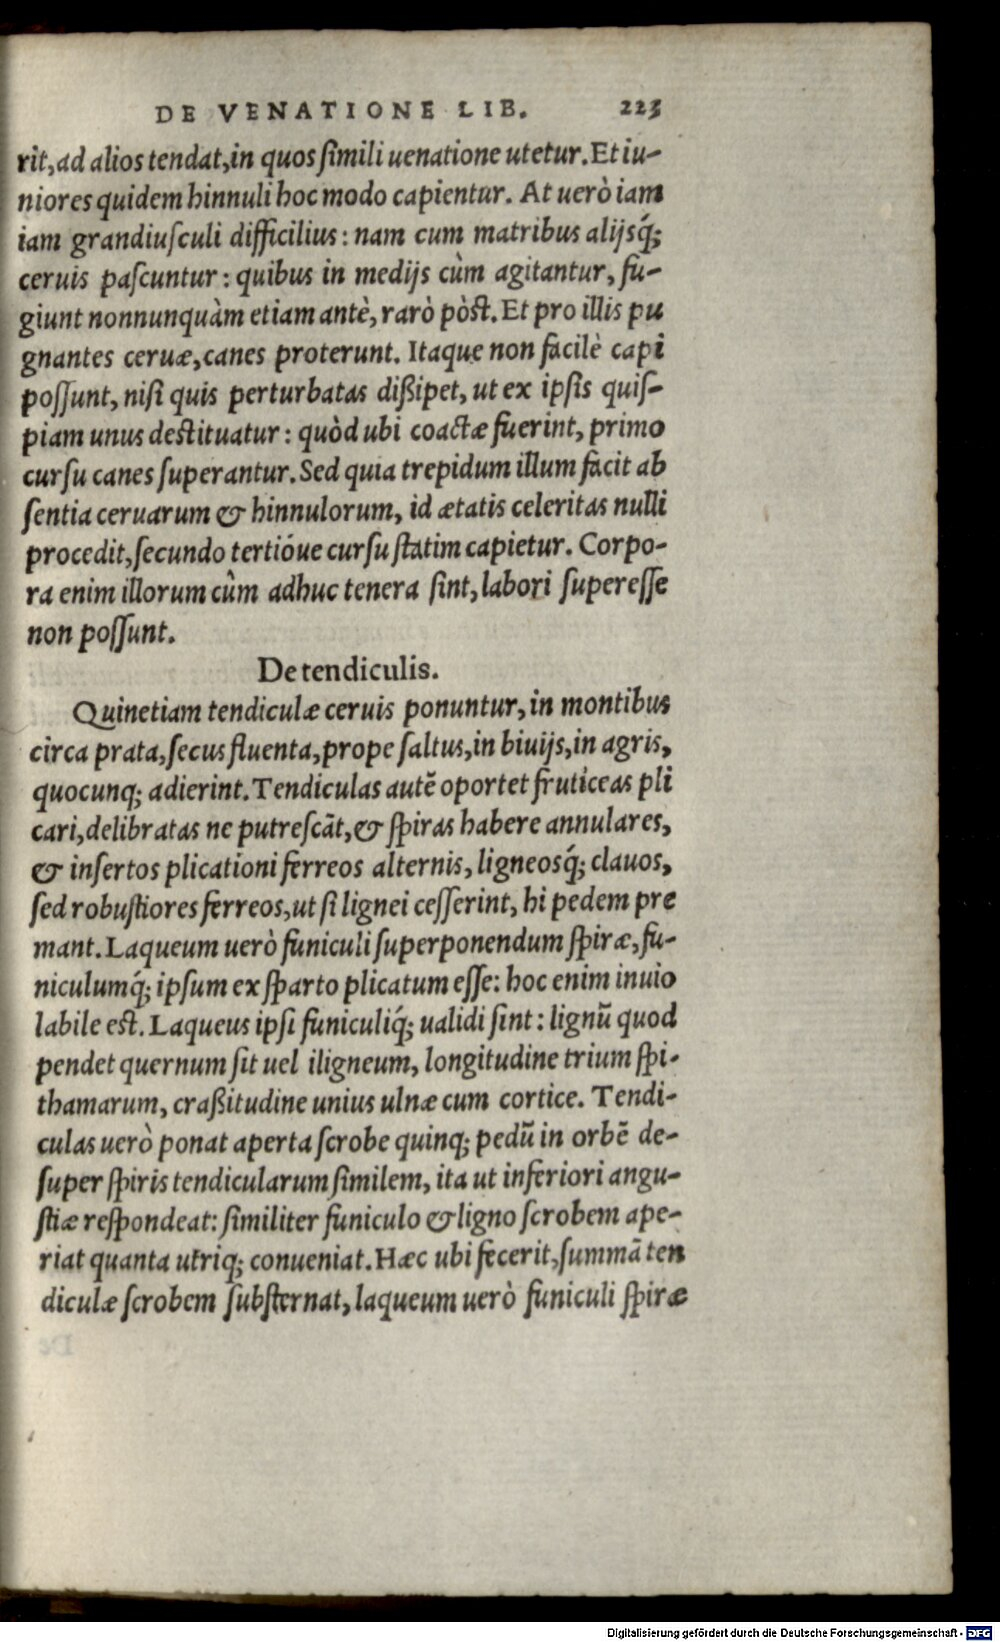 DE VENATIONE LIB. 223
rit, ad alios tendat, in quos ſimili uenatione utetur. Et iu-
niores quidem hinnuli hoc modo capientur. At uerò iam
iam grandiuſculi difficilius: nam cum matribus alijsq́;
ceruis paſcuntur: quibus in medijs cùm agitantur, fu-
giunt nonnunquàm etiam antè, rarò pòst. Et pro illis pu
gnantes ceruæ, canes proterunt. Itaque non facilè capi
poſſunt, niſi quis perturbatas dißipet, ut ex ipſis quiſ-
piam unus destituatur: quòd ubi coactæ fuerint, primo
curſu canes ſuperantur. Sed quia trepidum illum facit ab
ſentia ceruarum & hinnulorum, id ætatis celeritas nulli
procedit, ſecundo tertióue curſu ſtatim capietur. Corpo-
ra enim illorum cùm adhuc tenera ſint, labori ſupereſſe
non poſſunt.
De tendiculis.
Quinetiam tendiculæ ceruis ponuntur, in montibus
circa prata, ſecus fluenta, prope ſaltus, in biuijs, in agris,
quocunq; adierint. Tendiculas autē oportet fruticeas pli
cari, delibratas ne putreſcāt, & ſpiras habere annulares,
& inſertos plicationi ferreos alternis, ligneosq́; clauos,
ſed robuſtiores ferreos, ut ſi lignei ceſſerint, hi pedem pre
mant. Laqueum uerò funiculi ſuperponendum ſpiræ, fu-
niculumq́; ipſum ex ſparto plicatum eſſe: hoc enim inuio
labile est. Laqueus ipſi funiculiq́; ualidi ſint: lignū quod
pendet quernum ſit uel iligneum, longitudine trium ſpi-
thamarum, craßitudine unius ulnæ cum cortice. Tendi-
culas uerò ponat aperta ſcrobe quinq; pedū in orbē de-
ſuper ſpiris tendicularum ſimilem, ita ut inferiori angu-
ſtiæ reſpondeat: ſimiliter funiculo & ligno ſcrobem ape-
riat quanta utriq; conueniat. Hæc ubi fecerit, ſummā ten
diculæ ſcrobem ſubſternat, laqueum uerò funiculi ſpiræ
Digitalisierung gefördert durch die Deutsche Forschungsgemeinschaft - DFG